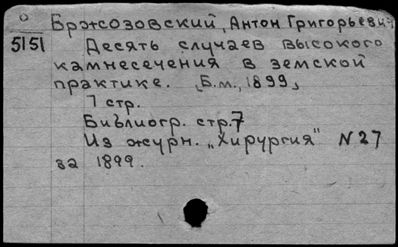 О Бржозовский, Антон Григорьевич
5151 Десять случаев высокого
камнесечения в земской
практике. [Б.м., 1899]
7 стр.
Библиогр. стр. 7
Из журн. „Хирургия" N 27
за 1899.